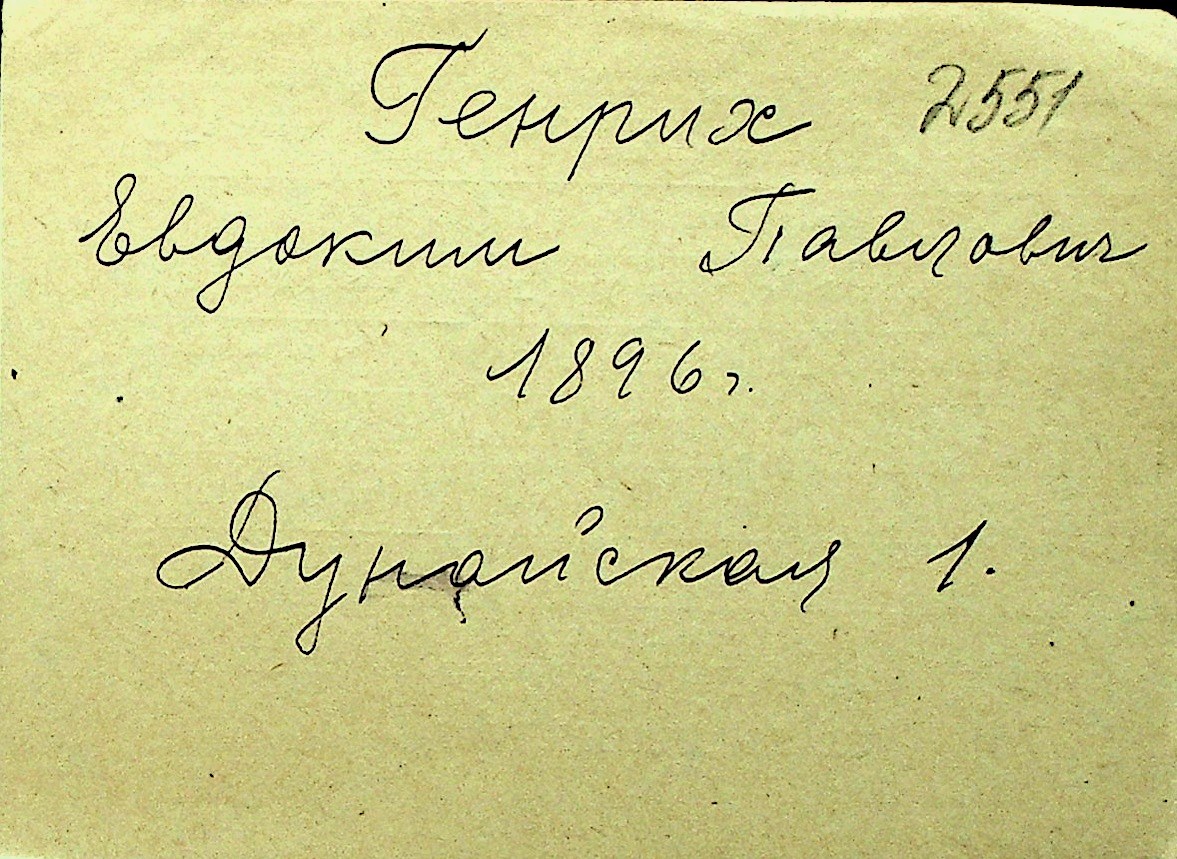 Генрих 2551
Евдоким Павлович
1896г.
Дунайская 1.